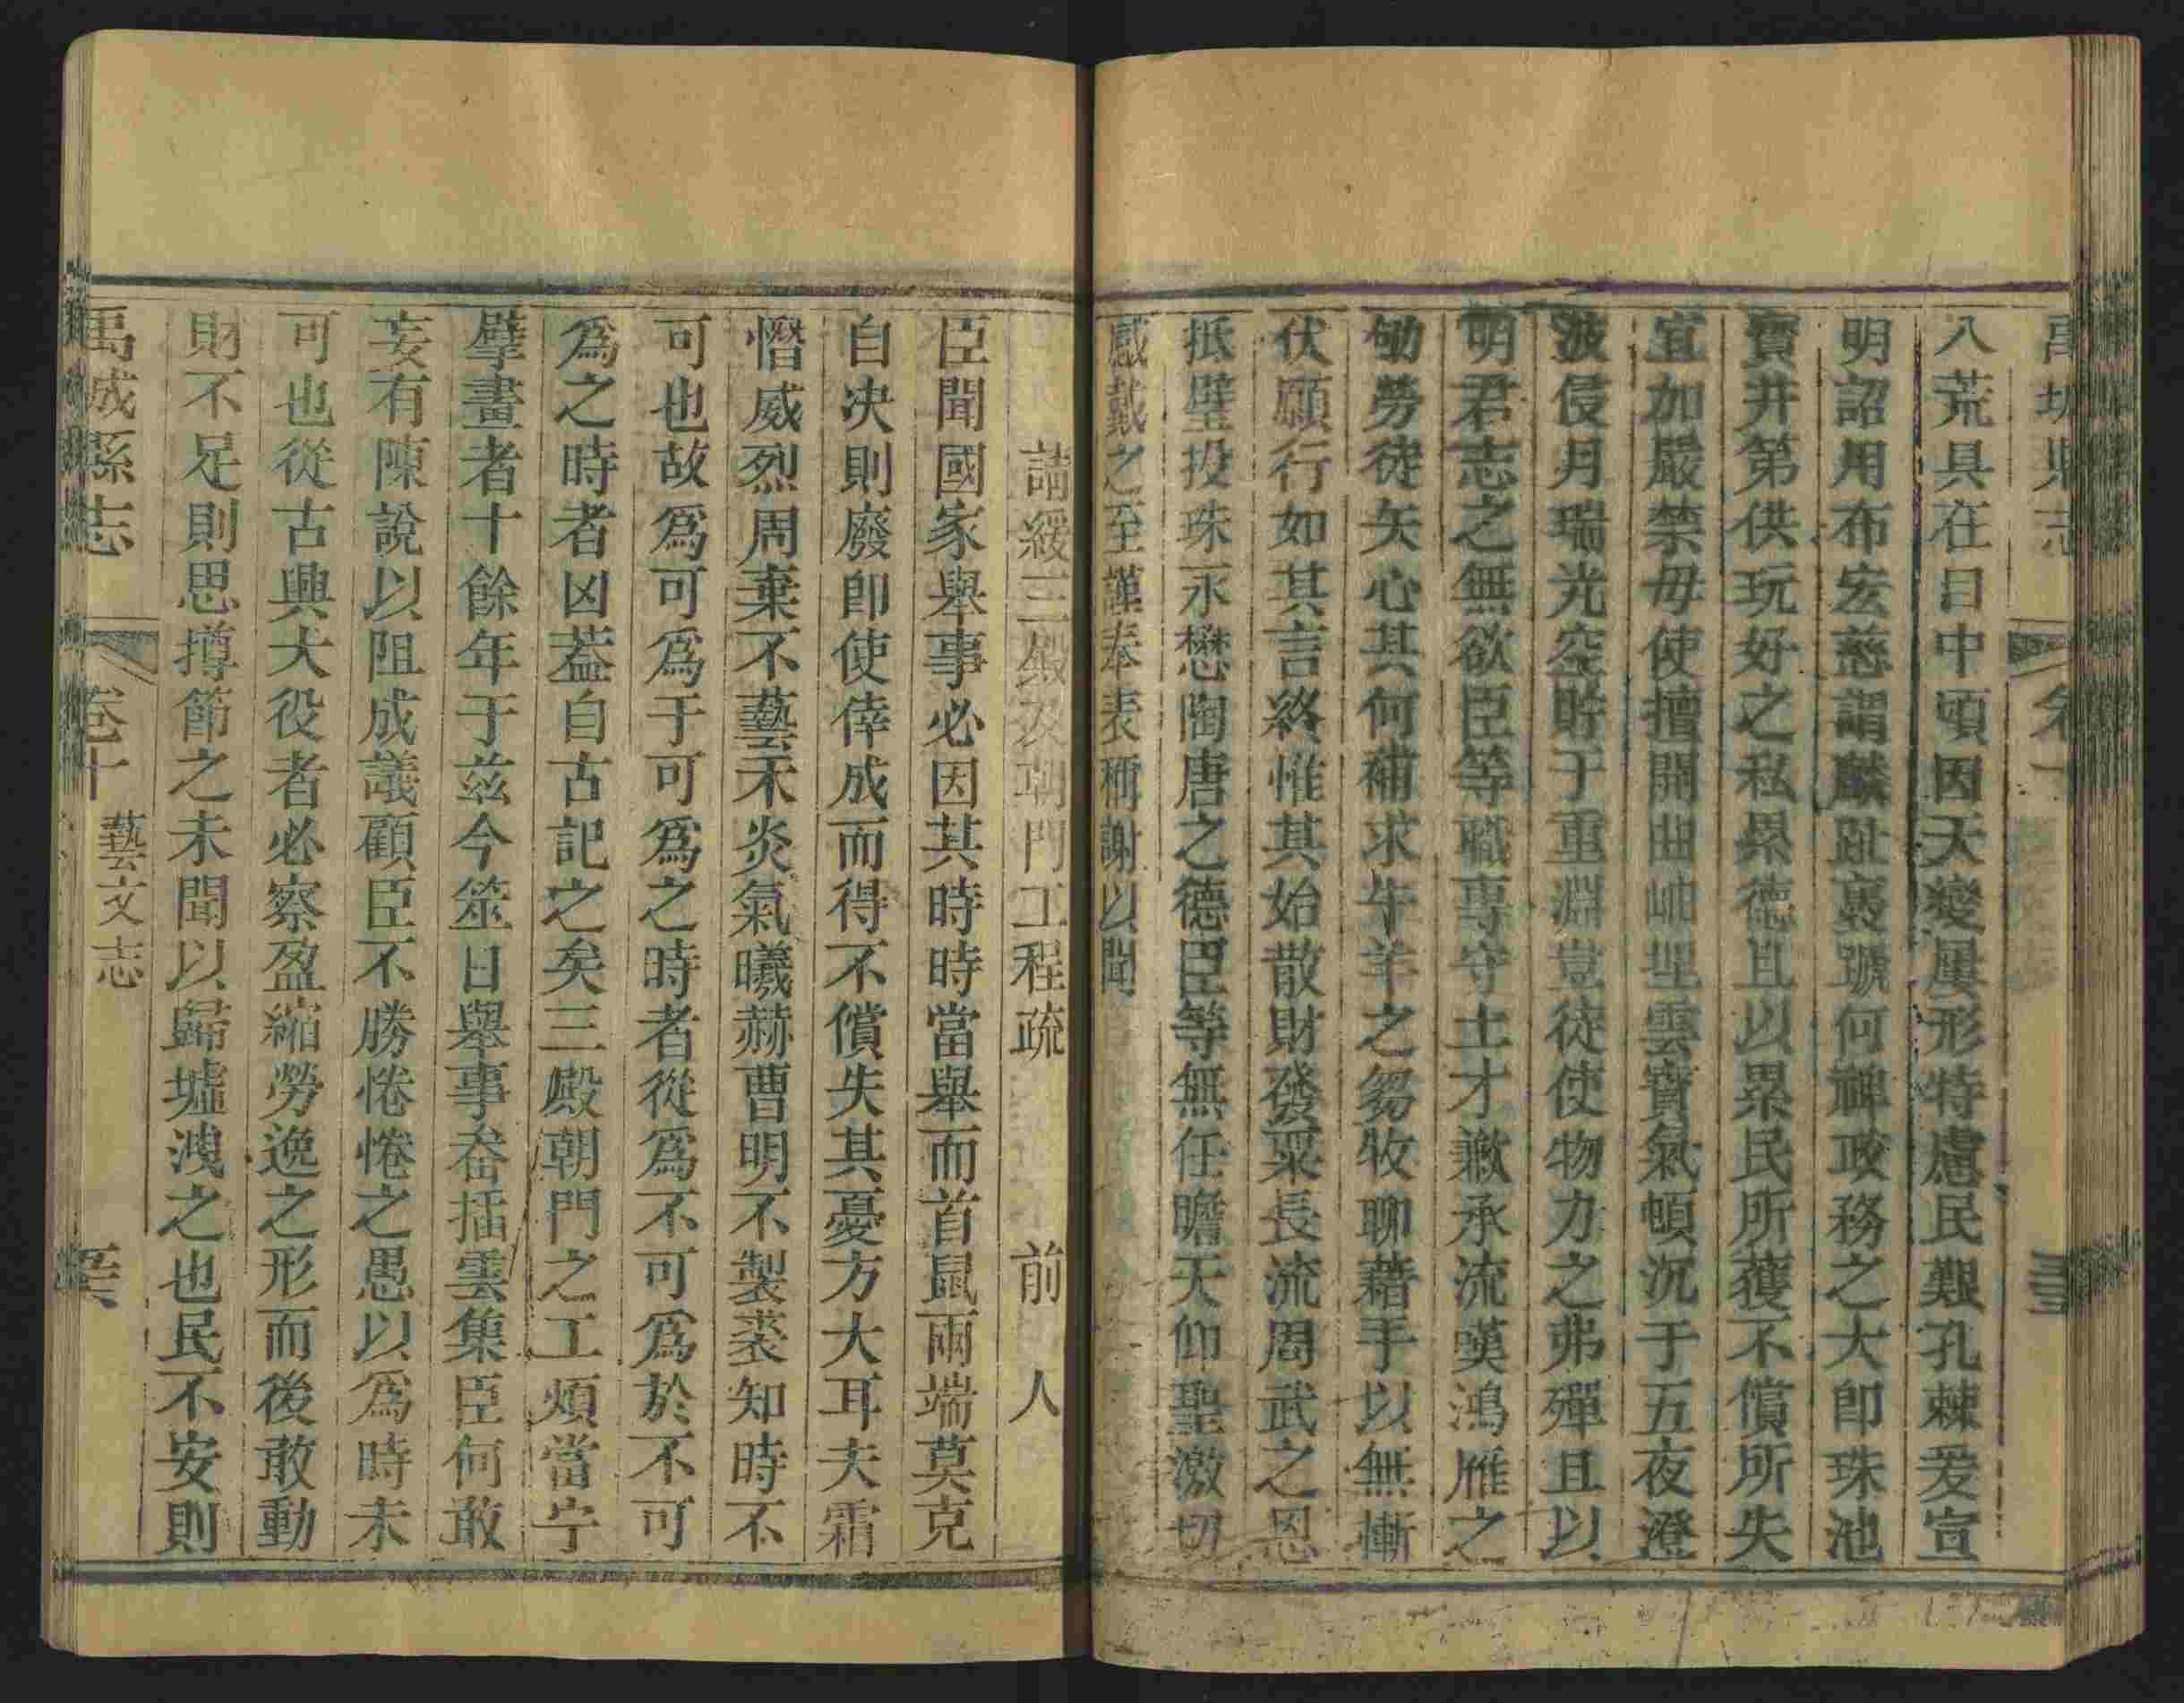 禹城縣志
八荒具在目中頃因天變屢形特慮民艱孔棘爰宣
明詔用布宏慈謂麟趾裹號何禆政務之大卽珠池
寶井第供玩好之私累德且以累民所獲不償所失
宜加嚴禁毋使擅開曲岫埋雲寶氣頓沉于五夜澄
波侵月瑞光空貯于重淵豈徒使物力之弗殫且以
明君志之無欲臣等職専守土才歉承流嘆鴻雁之
劬勞徒矢心其何補求牛羊之芻牧聊藉手以無慚
伏願行如其言終惟其始散財發粟長流周武之恩
抵璧投珠永懋陶唐之德臣等無任瞻天仰聖激切
感戴之至謹奉表稱謝以聞
請緩三殿及朝門工程疏 前人
臣聞國家舉事必因其時時當舉而首鼠兩端莫克
自決則廢卽使倖成而得不償失其憂方大耳夫霜
憯威烈周棄不藝禾炎氣曦赫曹明不製裘知時不
可也故爲可爲于可爲之時者從爲不可爲於不可
爲之時者凶蓋自古記之矣三殿朝門之工煩當宁
擘畫者十餘年于兹今筮日舉事畚插雲集臣何敢
妄有陳說以阻成議顧臣不勝惓惓之愚以爲時未
可也從古興大役者必察盈縮勞逸之形而後敢動
財不足則思撙節之未聞以歸墟洩之也民不安則
禹城縣志 卷十 藝文志